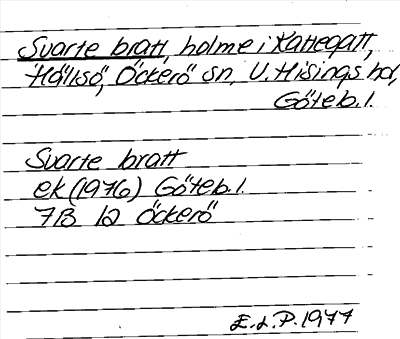 Svarte bratt, holme i Kattegatt,
Hällsö, Öckerö sn, V. Hisings hd,
Göteb. l.
Svarte bratt
ek (1976) Göteb. l.
7B 1a Öckerö
E.L.P. 1977